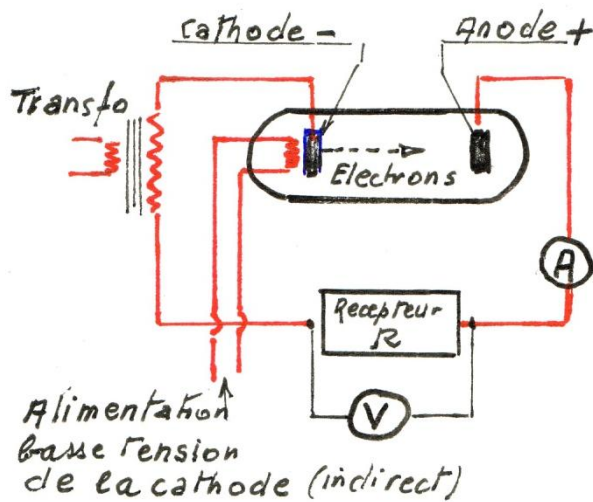 Cathode -
Anode +
Transfo
Electrons
A
Recepteur
R
V
Alimentation
basse Tension
de la cathode (indirect)